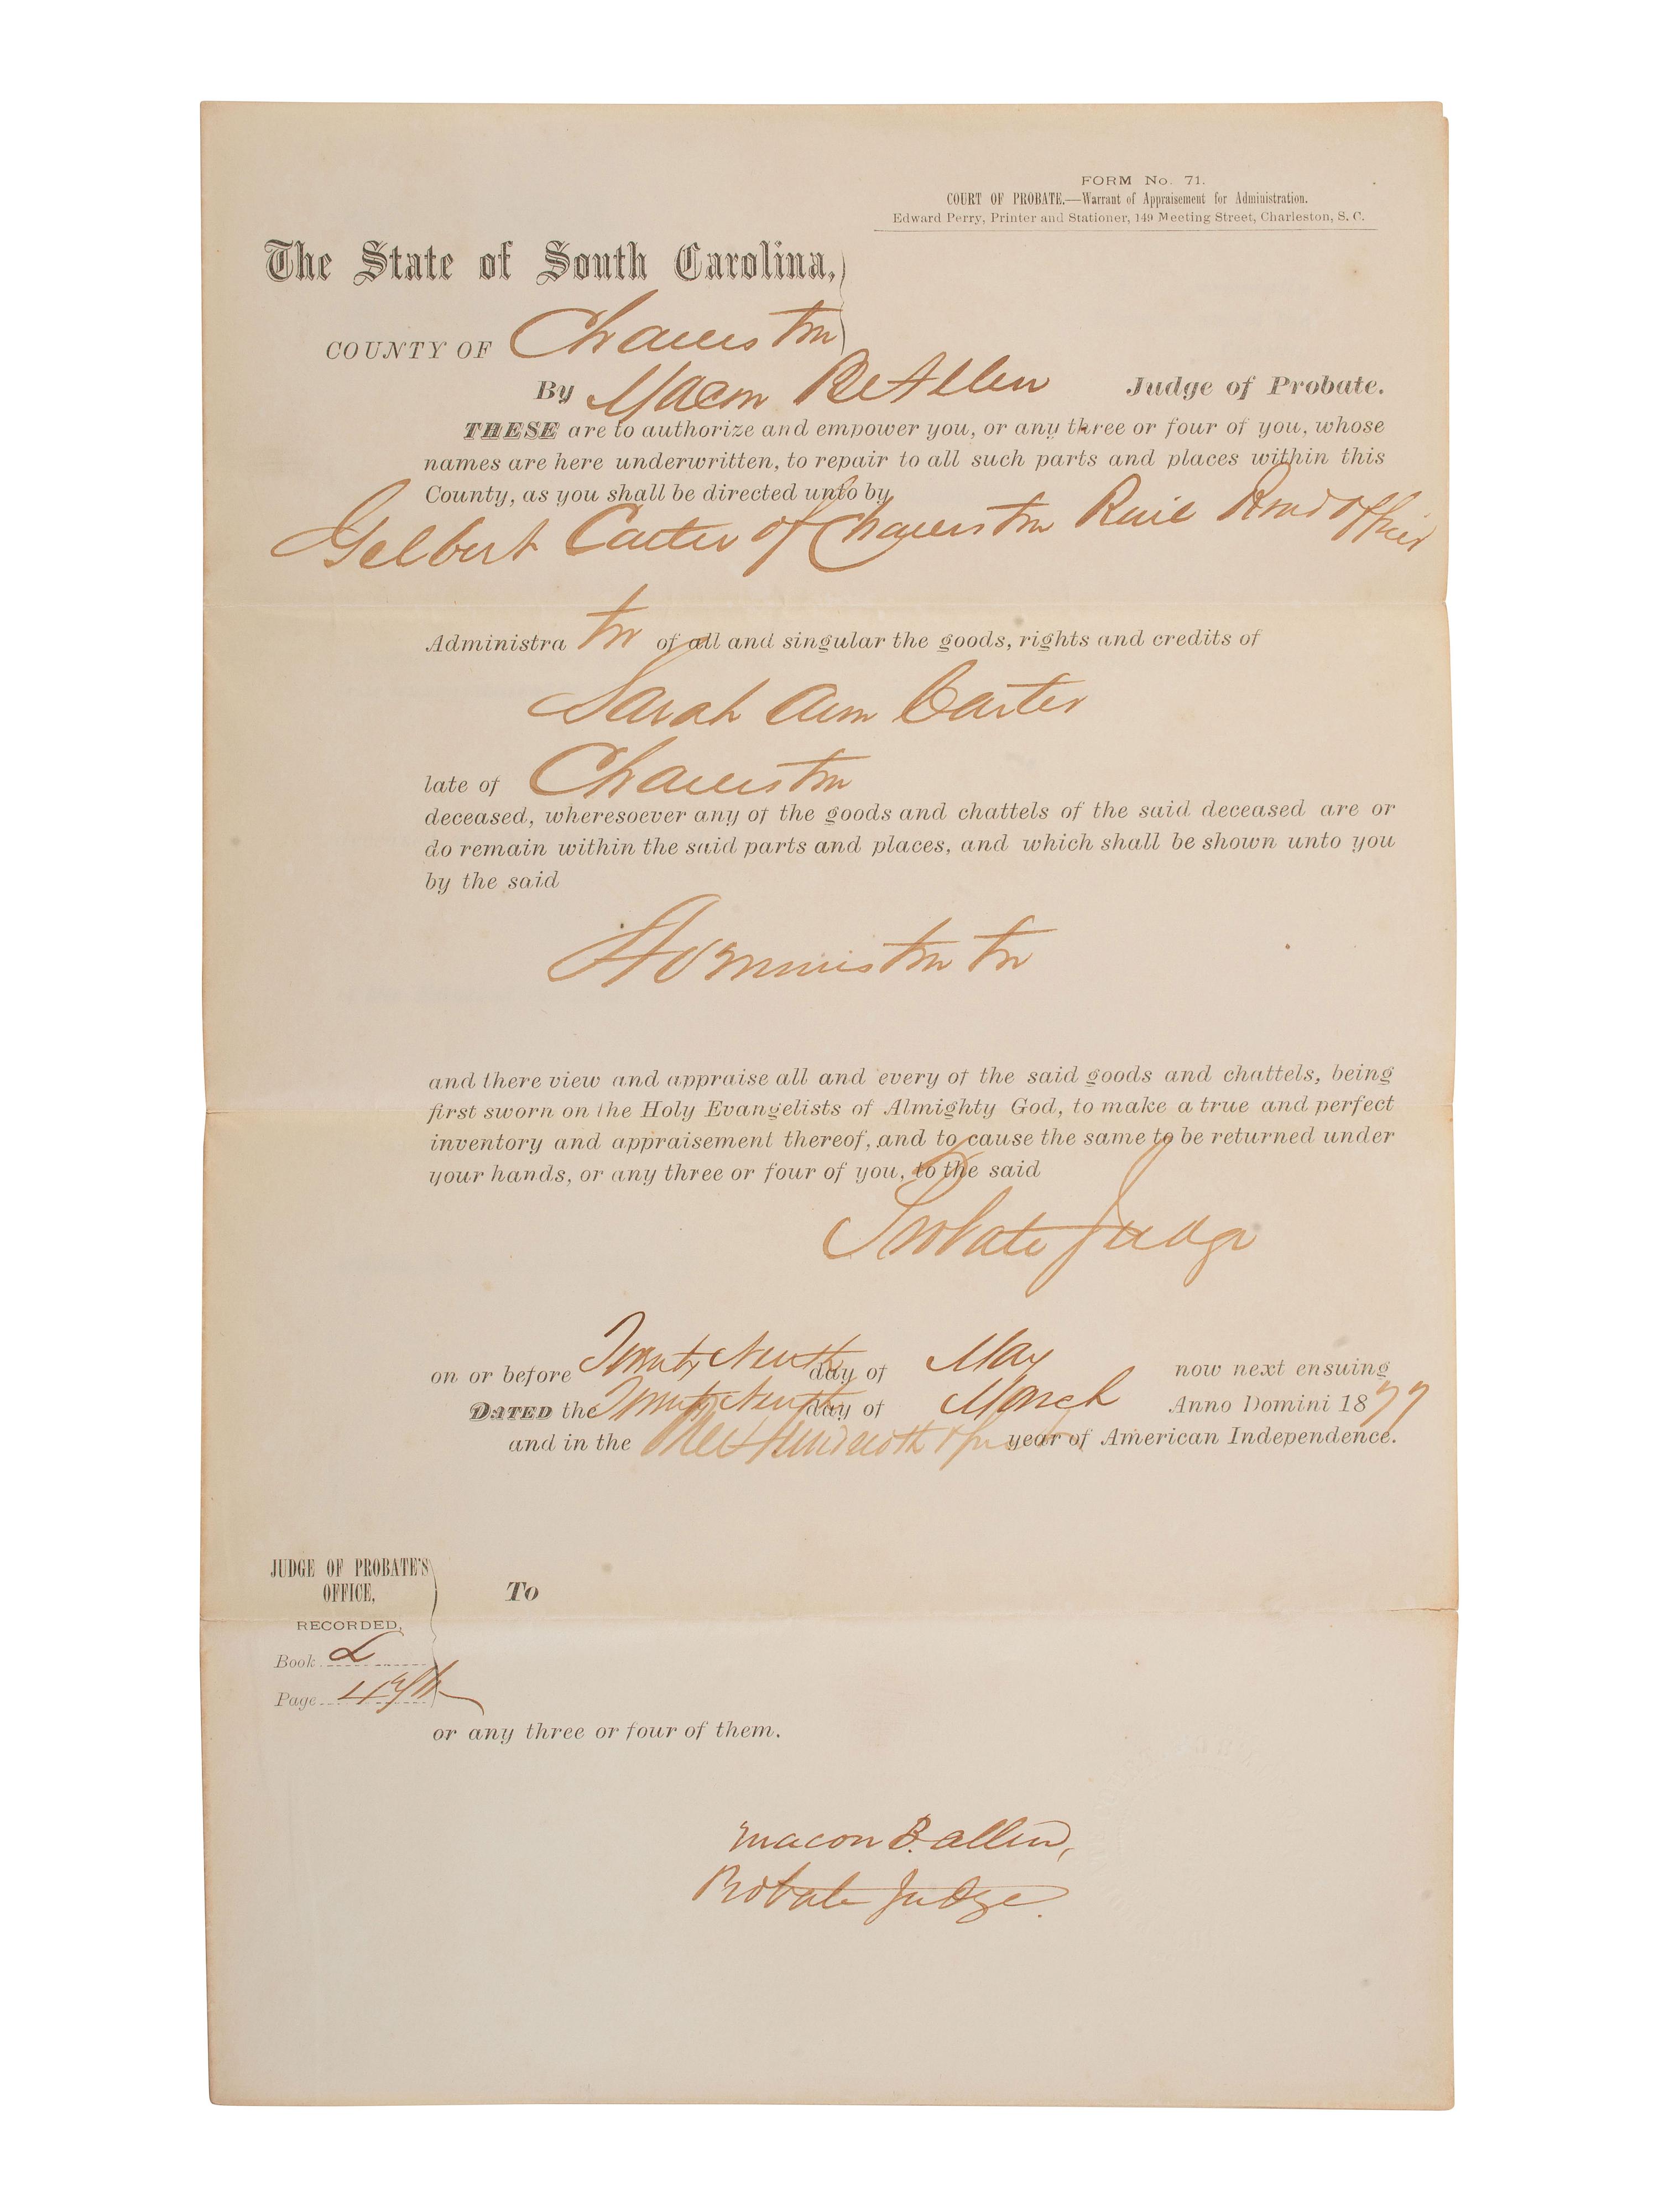 FORM No. 71.
COURT OF PROBATE.—Warrant of Appraisement for Administration.
Edward Perry, Printer and Stationer, 149 Meeting Street, Charleston, S. C.
The State of South Carolina,
COUNTY OF Charleston
By Macon B Allen Judge of Probate.
THESE are to authorize and empower you, or any three or four of you, whose
names are here underwritten, to repair to all such parts and places within this
County, as you shall be directed unto by
Gilbert Carter of Charleston Rail Road Office
Administrator of all and singular the goods, rights and credits of
Sarah Ann Carter
late of Charleston
deceased, wheresoever any of the goods and chattels of the said deceased are or
do remain within the said parts and places, and which shall be shown unto you
by the said
Administrator
and there view and appraise all and every of the said goods and chattels, being
first sworn on the Holy Evangelists of Almighty God, to make a true and perfect
inventory and appraisement thereof, and to cause the same to be returned under
your hands, or any three or four of you, to the said
Probate Judge
on or before Twenty Ninth day of May now next ensuing
DATED the Twenty Ninth day of March Anno Domini 1877
and in the One Hundredth & first year of American Independence.
JUDGE OF PROBATE'S
OFFICE,
To
RECORDED,
Book L
Page
or any three or four of them.
Macon B. Allen,
Probate Judge.